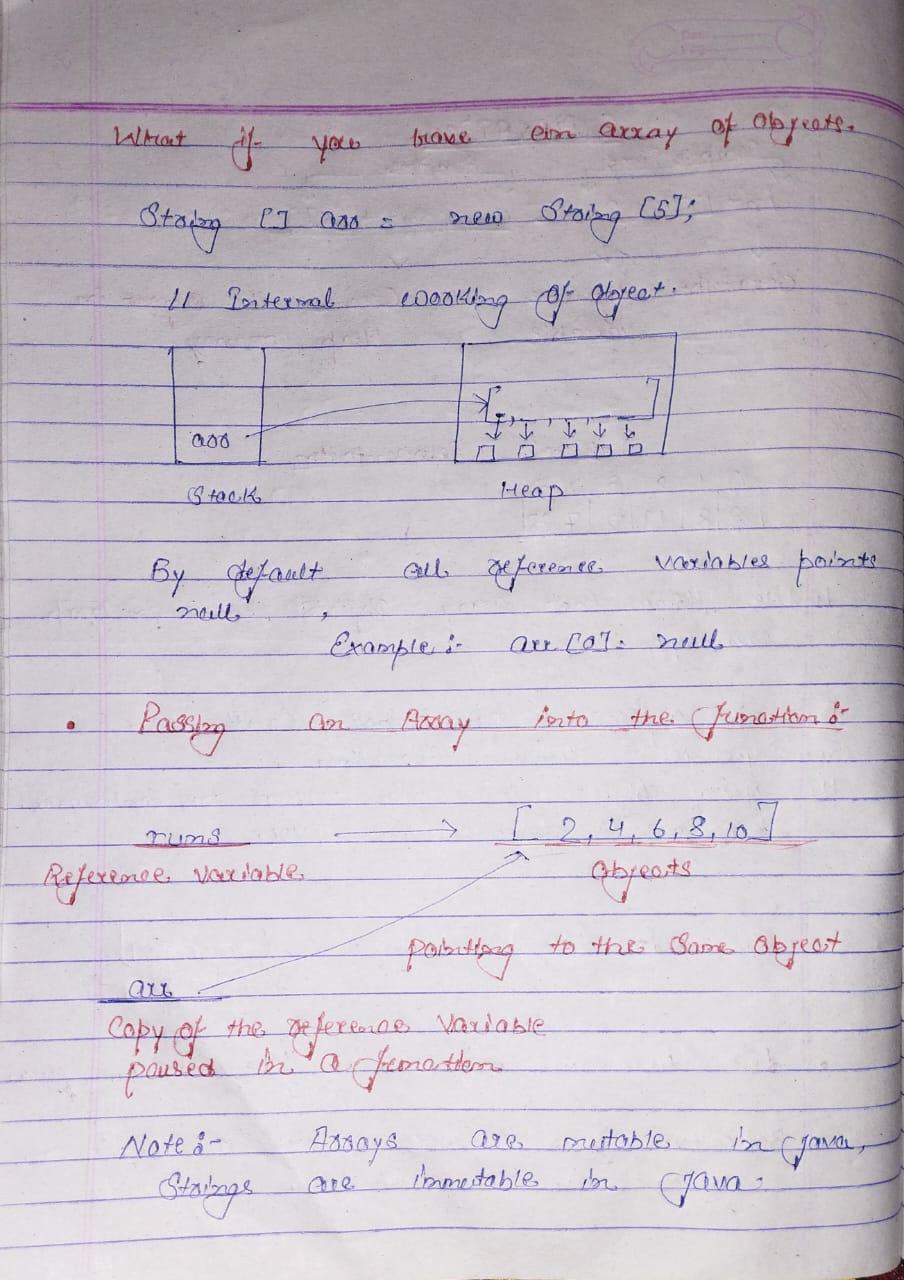 What if you have an array of objects.
String [] arr = new String [5];
// Internal working of object.
arr
Stack Heap
By default all reference variables points
null,
Example :- arr [0] = null
• Passing an Array into the function :-
nums [2, 4, 6, 8, 10]
Reference variable Objects
pointing to the same object
arr
Copy of the reference variable
passed in a function
Note :- Arrays are mutable in java,
Strings are immutable in java.